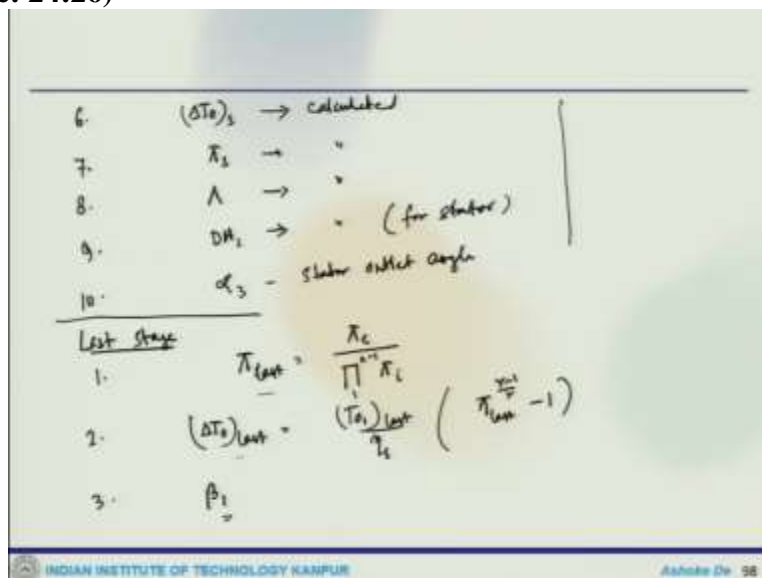 c. 24:26)
6. (ΔT₀)₁ → calculated
7. π₁ → "
8. Λ → "
9. DH₁ → " (for stator)
10. α₃ - stator outlet angle
Last Stage
1. π_last = π_c / ∏₁ⁿ⁻¹ π_i
2. (ΔT₀)_last = (T₀₁)_last / η_s ( π_last^((γ-1)/γ) - 1 )
3. β₁
INDIAN INSTITUTE OF TECHNOLOGY KANPUR
Ashoke De 98